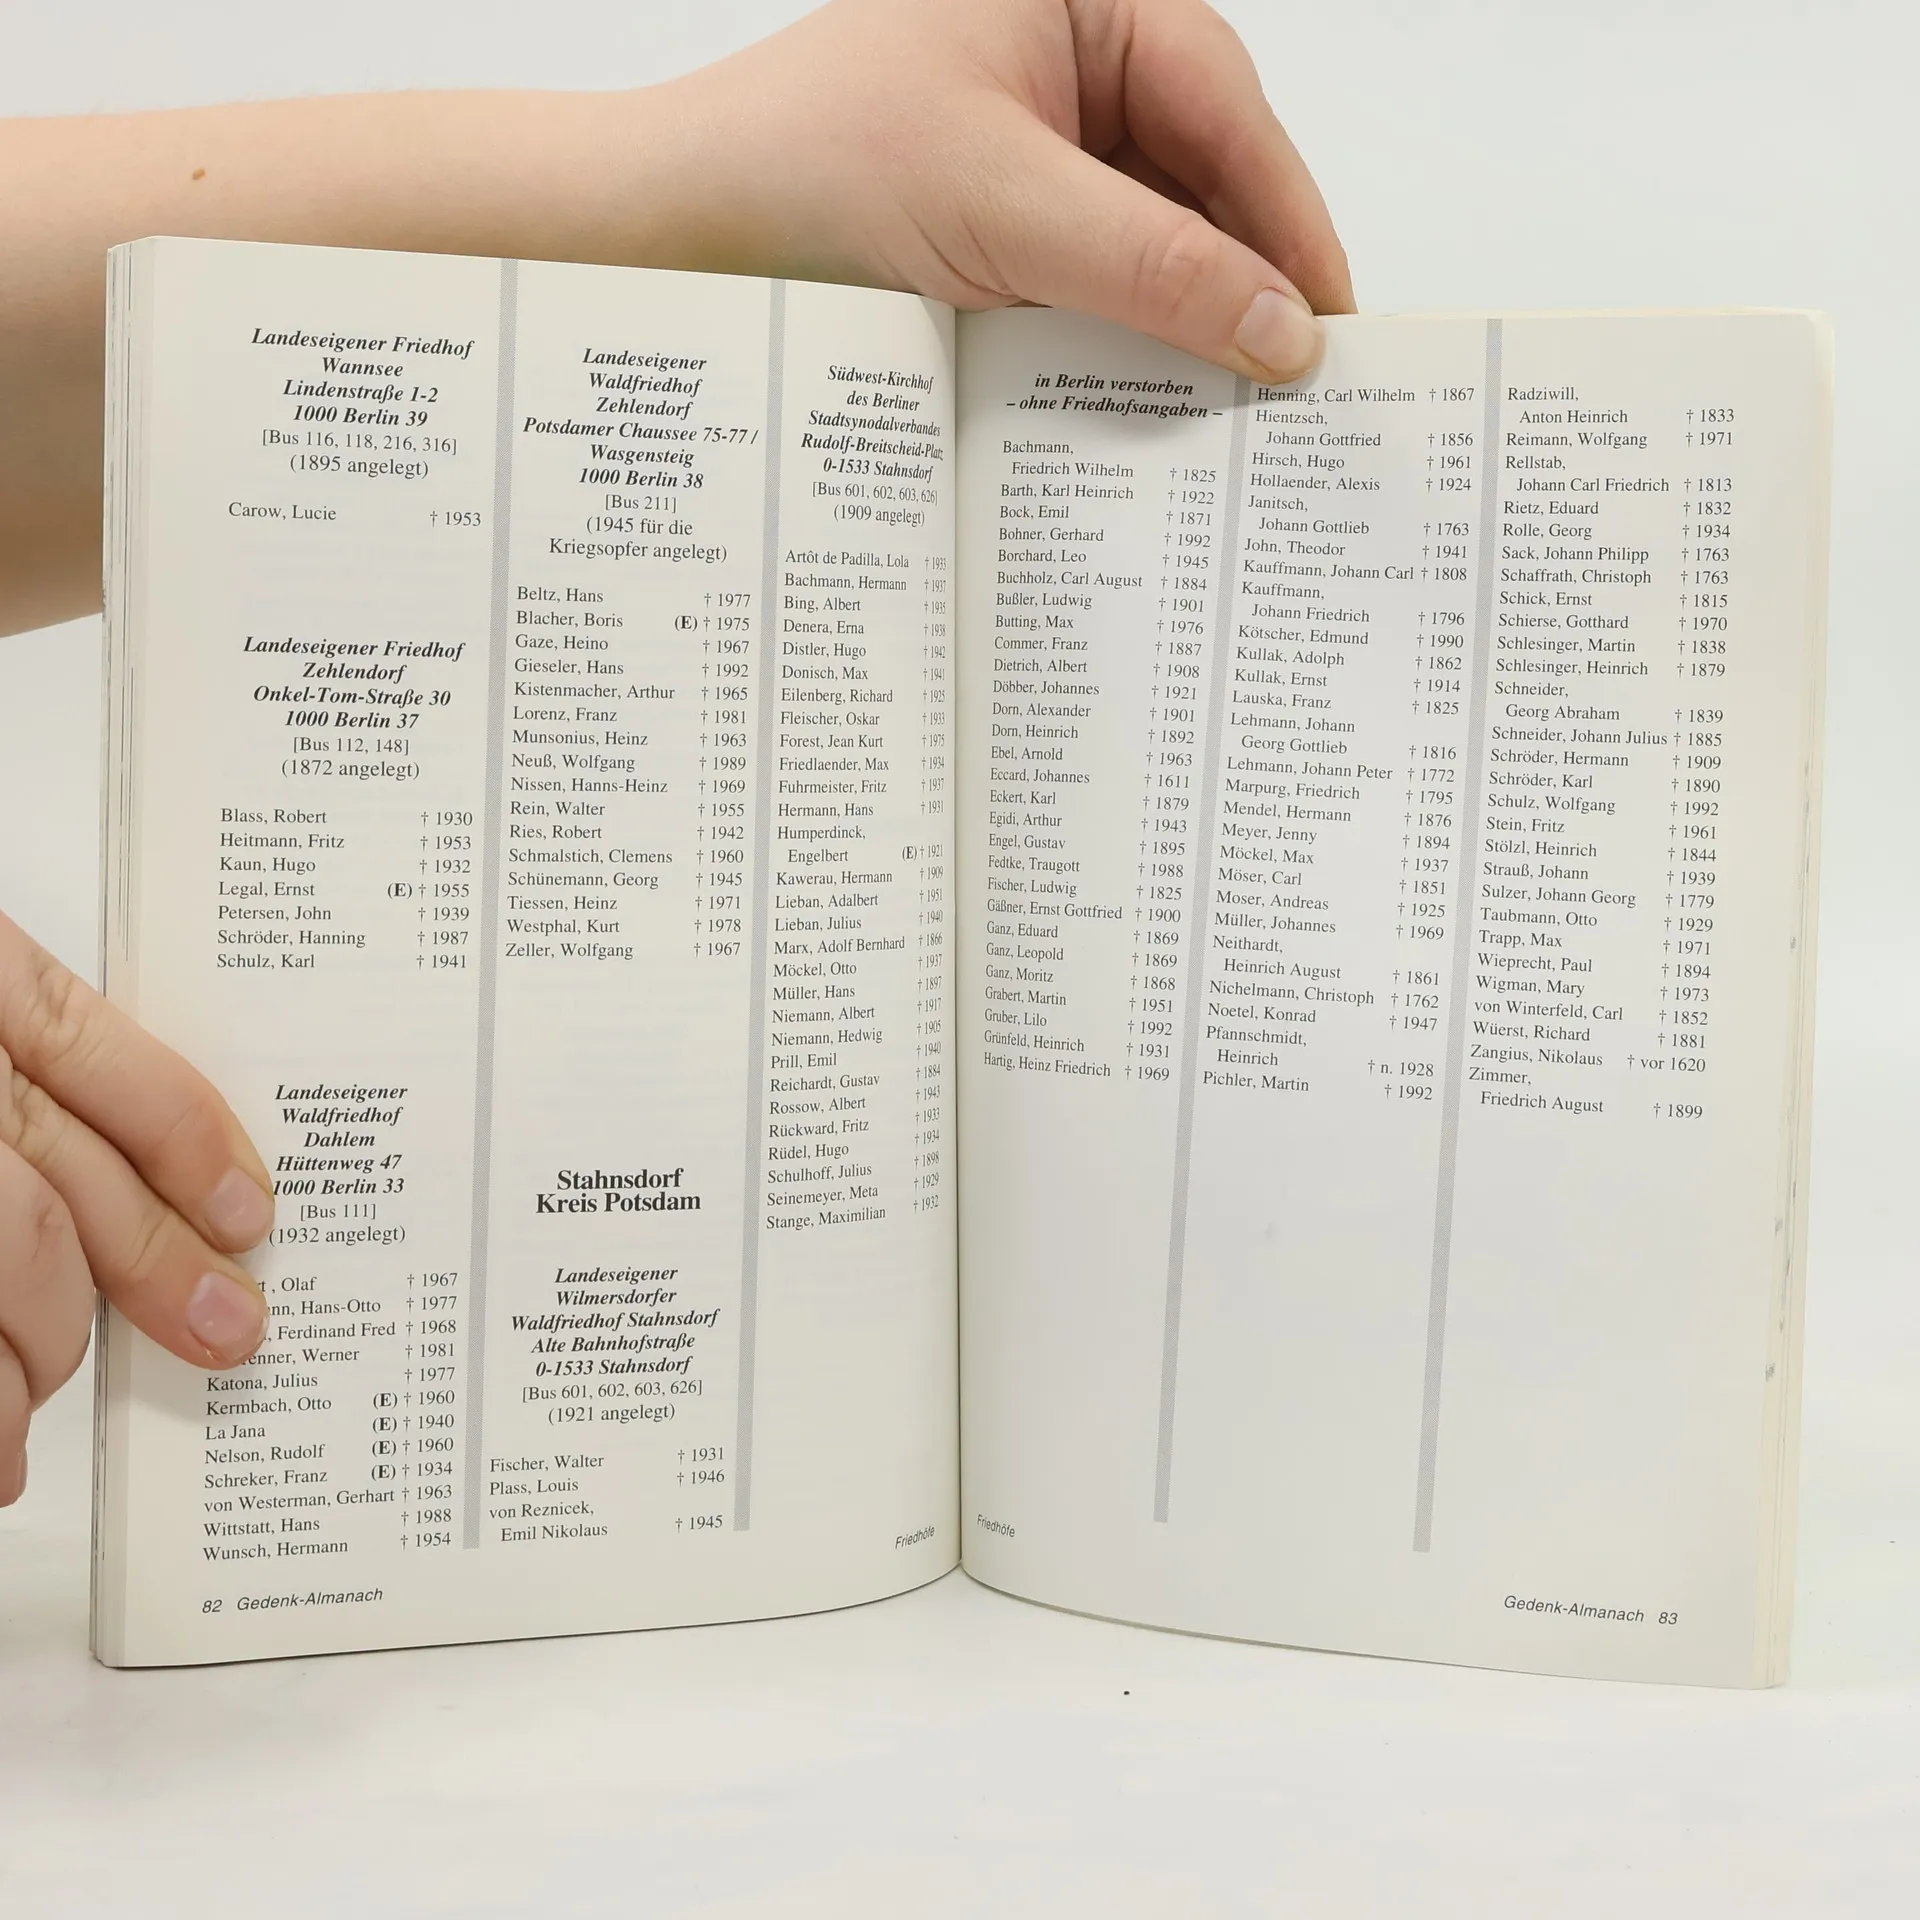 Landeseigener Friedhof
Wannsee
Lindenstraße 1-2
1000 Berlin 39
[Bus 116, 118, 216, 316]
(1895 angelegt)
Carow, Lucie † 1953
Landeseigener Friedhof
Zehlendorf
Onkel-Tom-Straße 30
1000 Berlin 37
[Bus 112, 148]
(1872 angelegt)
Blass, Robert † 1930
Heitmann, Fritz † 1953
Kaun, Hugo † 1932
Legal, Ernst (E) † 1955
Petersen, John † 1939
Schröder, Hanning † 1987
Schulz, Karl † 1941
Landeseigener
Waldfriedhof
Dahlem
Hüttenweg 47
1000 Berlin 33
[Bus 111]
(1932 angelegt)
, Olaf † 1967
Hans-Otto † 1977
Ferdinand Fred † 1968
Werner † 1981
Katona, Julius † 1977
Kermbach, Otto (E) † 1960
La Jana (E) † 1940
Nelson, Rudolf (E) † 1960
Schreker, Franz (E) † 1934
von Westerman, Gerhart † 1963
Wittstatt, Hans † 1988
Wunsch, Hermann † 1954
Landeseigener
Waldfriedhof
Zehlendorf
Potsdamer Chaussee 75-77 /
Wasgensteig
1000 Berlin 38
[Bus 211]
(1945 für die
Kriegsopfer angelegt)
Beltz, Hans † 1977
Blacher, Boris (E) † 1975
Gaze, Heino † 1967
Gieseler, Hans † 1992
Kistenmacher, Arthur † 1965
Lorenz, Franz † 1981
Munsonius, Heinz † 1963
Neuß, Wolfgang † 1989
Nissen, Hanns-Heinz † 1969
Rein, Walter † 1955
Ries, Robert † 1942
Schmalstich, Clemens † 1960
Schünemann, Georg † 1945
Tiessen, Heinz † 1971
Westphal, Kurt † 1978
Zeller, Wolfgang † 1967
Stahnsdorf
Kreis Potsdam
Landeseigener
Wilmersdorfer
Waldfriedhof Stahnsdorf
Alte Bahnhofstraße
0-1533 Stahnsdorf
[Bus 601, 602, 603, 626]
(1921 angelegt)
Fischer, Walter † 1931
Plass, Louis † 1946
von Reznicek,
Emil Nikolaus † 1945
Südwest-Kirchhof
des Berliner
Stadtsynodalverbandes
Rudolf-Breitscheid-Platz
0-1533 Stahnsdorf
[Bus 601, 602, 603, 626]
(1909 angelegt)
Artôt de Padilla, Lola † 1933
Bachmann, Hermann † 1937
Bing, Albert † 1935
Denera, Erna † 1938
Distler, Hugo † 1942
Donisch, Max † 1941
Eilenberg, Richard † 1925
Fleischer, Oskar † 1933
Forest, Jean Kurt † 1975
Friedlaender, Max † 1934
Fuhrmeister, Fritz † 1937
Hermann, Hans † 1931
Humperdinck,
Engelbert (E) † 1921
Kawerau, Hermann † 1909
Lieban, Adalbert † 1951
Lieban, Julius † 1940
Marx, Adolf Bernhard † 1866
Möckel, Otto † 1937
Müller, Hans † 1897
Niemann, Albert † 1917
Niemann, Hedwig † 1905
Prill, Emil † 1940
Reichardt, Gustav † 1884
Rossow, Albert † 1943
Rückward, Fritz † 1933
Rüdel, Hugo † 1934
Schulhoff, Julius † 1898
Seinemeyer, Meta † 1929
Stange, Maximilian † 1932
Friedhöfe
82 Gedenk-Almanach
in Berlin verstorben
– ohne Friedhofsangaben –
Bachmann,
Friedrich Wilhelm † 1825
Barth, Karl Heinrich † 1922
Bock, Emil † 1871
Bohner, Gerhard † 1992
Borchard, Leo † 1945
Buchholz, Carl August † 1884
Bußler, Ludwig † 1901
Butting, Max † 1976
Commer, Franz † 1887
Dietrich, Albert † 1908
Döbber, Johannes † 1921
Dorn, Alexander † 1901
Dorn, Heinrich † 1892
Ebel, Arnold † 1963
Eccard, Johannes † 1611
Eckert, Karl † 1879
Egidi, Arthur † 1943
Engel, Gustav † 1895
Fedtke, Traugott † 1988
Fischer, Ludwig † 1825
Gäßner, Ernst Gottfried † 1900
Ganz, Eduard † 1869
Ganz, Leopold † 1869
Ganz, Moritz † 1868
Grabert, Martin † 1951
Gruber, Lilo † 1992
Grünfeld, Heinrich † 1931
Hartig, Heinz Friedrich † 1969
Henning, Carl Wilhelm † 1867
Hientzsch,
Johann Gottfried † 1856
Hirsch, Hugo † 1961
Hollaender, Alexis † 1924
Janitsch,
Johann Gottlieb † 1763
John, Theodor † 1941
Kauffmann, Johann Carl † 1808
Kauffmann,
Johann Friedrich † 1796
Kötscher, Edmund † 1990
Kullak, Adolph † 1862
Kullak, Ernst † 1914
Lauska, Franz † 1825
Lehmann, Johann
Georg Gottlieb † 1816
Lehmann, Johann Peter † 1772
Marpurg, Friedrich † 1795
Mendel, Hermann † 1876
Meyer, Jenny † 1894
Möckel, Max † 1937
Möser, Carl † 1851
Moser, Andreas † 1925
Müller, Johannes † 1969
Neithardt,
Heinrich August † 1861
Nichelmann, Christoph † 1762
Noetel, Konrad † 1947
Pfannschmidt,
Heinrich † n. 1928
Pichler, Martin † 1992
Radziwill,
Anton Heinrich † 1833
Reimann, Wolfgang † 1971
Rellstab,
Johann Carl Friedrich † 1813
Rietz, Eduard † 1832
Rolle, Georg † 1934
Sack, Johann Philipp † 1763
Schaffrath, Christoph † 1763
Schick, Ernst † 1815
Schierse, Gotthard † 1970
Schlesinger, Martin † 1838
Schlesinger, Heinrich † 1879
Schneider,
Georg Abraham † 1839
Schneider, Johann Julius † 1885
Schröder, Hermann † 1909
Schröder, Karl † 1890
Schulz, Wolfgang † 1992
Stein, Fritz † 1961
Stölzl, Heinrich † 1844
Strauß, Johann † 1939
Sulzer, Johann Georg † 1779
Taubmann, Otto † 1929
Trapp, Max † 1971
Wieprecht, Paul † 1894
Wigman, Mary † 1973
von Winterfeld, Carl † 1852
Wüerst, Richard † 1881
Zangius, Nikolaus † vor 1620
Zimmer,
Friedrich August † 1899
Friedhöfe
Gedenk-Almanach 83